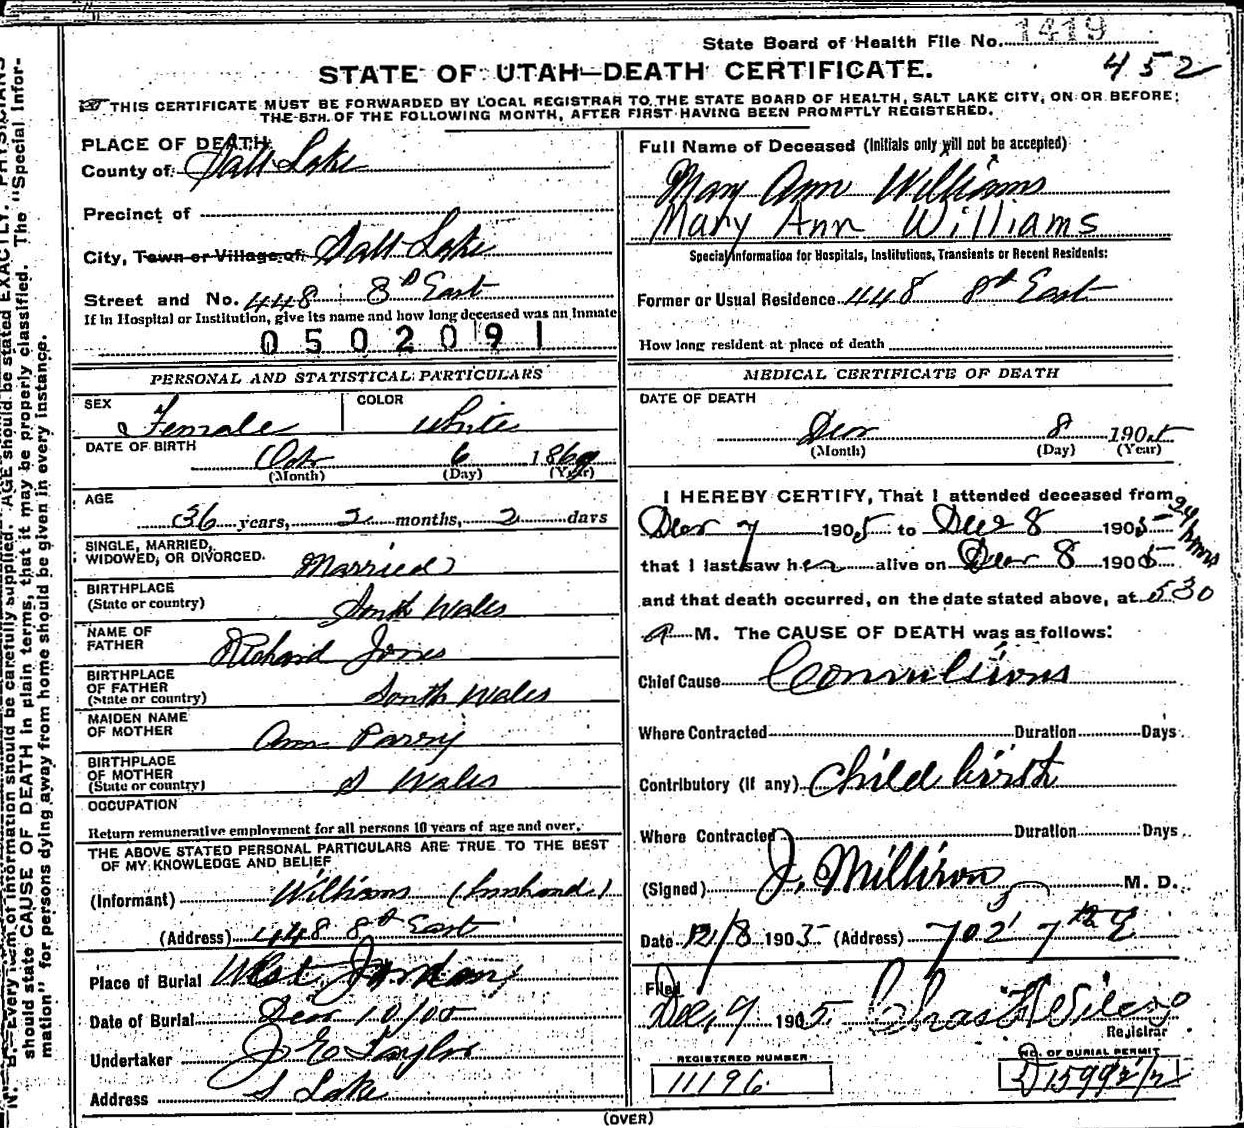 State Board of Health File No. 1419
452
STATE OF UTAH—DEATH CERTIFICATE.
THIS CERTIFICATE MUST BE FORWARDED BY LOCAL REGISTRAR TO THE STATE BOARD OF HEALTH, SALT LAKE CITY, ON OR BEFORE
THE 5TH. OF THE FOLLOWING MONTH, AFTER FIRST HAVING BEEN PROMPTLY REGISTERED.
PLACE OF DEATH
County of Salt Lake
Precinct of
City, Town or Village of Salt Lake
Street and No. 448 8th East
If in Hospital or Institution, give its name and how long deceased was an Inmate
0502091
PERSONAL AND STATISTICAL PARTICULARS
SEX Female COLOR White
DATE OF BIRTH Oct 6 1869
(Month) (Day) (Year)
AGE
36 years, 2 months, 2 days
SINGLE, MARRIED,
WIDOWED, OR DIVORCED. Married
BIRTHPLACE
(State or country) South Wales
NAME OF
FATHER Richard Jones
BIRTHPLACE
OF FATHER
(State or country) South Wales
MAIDEN NAME
OF MOTHER Ann Parry
BIRTHPLACE
OF MOTHER
(State or country) S Wales
OCCUPATION
Return remunerative employment for all persons 10 years of age and over.
THE ABOVE STATED PERSONAL PARTICULARS ARE TRUE TO THE BEST
OF MY KNOWLEDGE AND BELIEF
(Informant) Williams (husband)
(Address) 448 8th East
Place of Burial West Jordan
Date of Burial Dec 10/05
Undertaker J E Taylor
Address S Lake
Full Name of Deceased (Initials only will not be accepted)
Mary Ann Williams
Mary Ann Williams
Special Information for Hospitals, Institutions, Transients or Recent Residents:
Former or Usual Residence 448 8th East
How long resident at place of death
MEDICAL CERTIFICATE OF DEATH
DATE OF DEATH
Dec 8 1905
(Month) (Day) (Year)
I HEREBY CERTIFY, That I attended deceased from
Dec 7 1905 to Dec 8 1905 24 hours
that I last saw her alive on Dec 8 1905
and that death occurred, on the date stated above, at 530
A M. The CAUSE OF DEATH was as follows:
Chief Cause Convulsions
Where Contracted Duration Days
Contributory (if any) Child birth
Where Contracted Duration Days
(Signed) J. Milliron M. D.
Date 12/8 1905 (Address) 702 7th E
Filed
Dec, 9 1905
Registrar
REGISTERED NUMBER
11196
NO. OF BURIAL PERMIT
(OVER)
N. B.—Every item of information should be carefully supplied. AGE should be stated EXACTLY. PHYSICIANS
should state CAUSE OF DEATH in plain terms, that it may be properly classified. The "Special Infor-
mation" for persons dying away from home should be given in every instance.